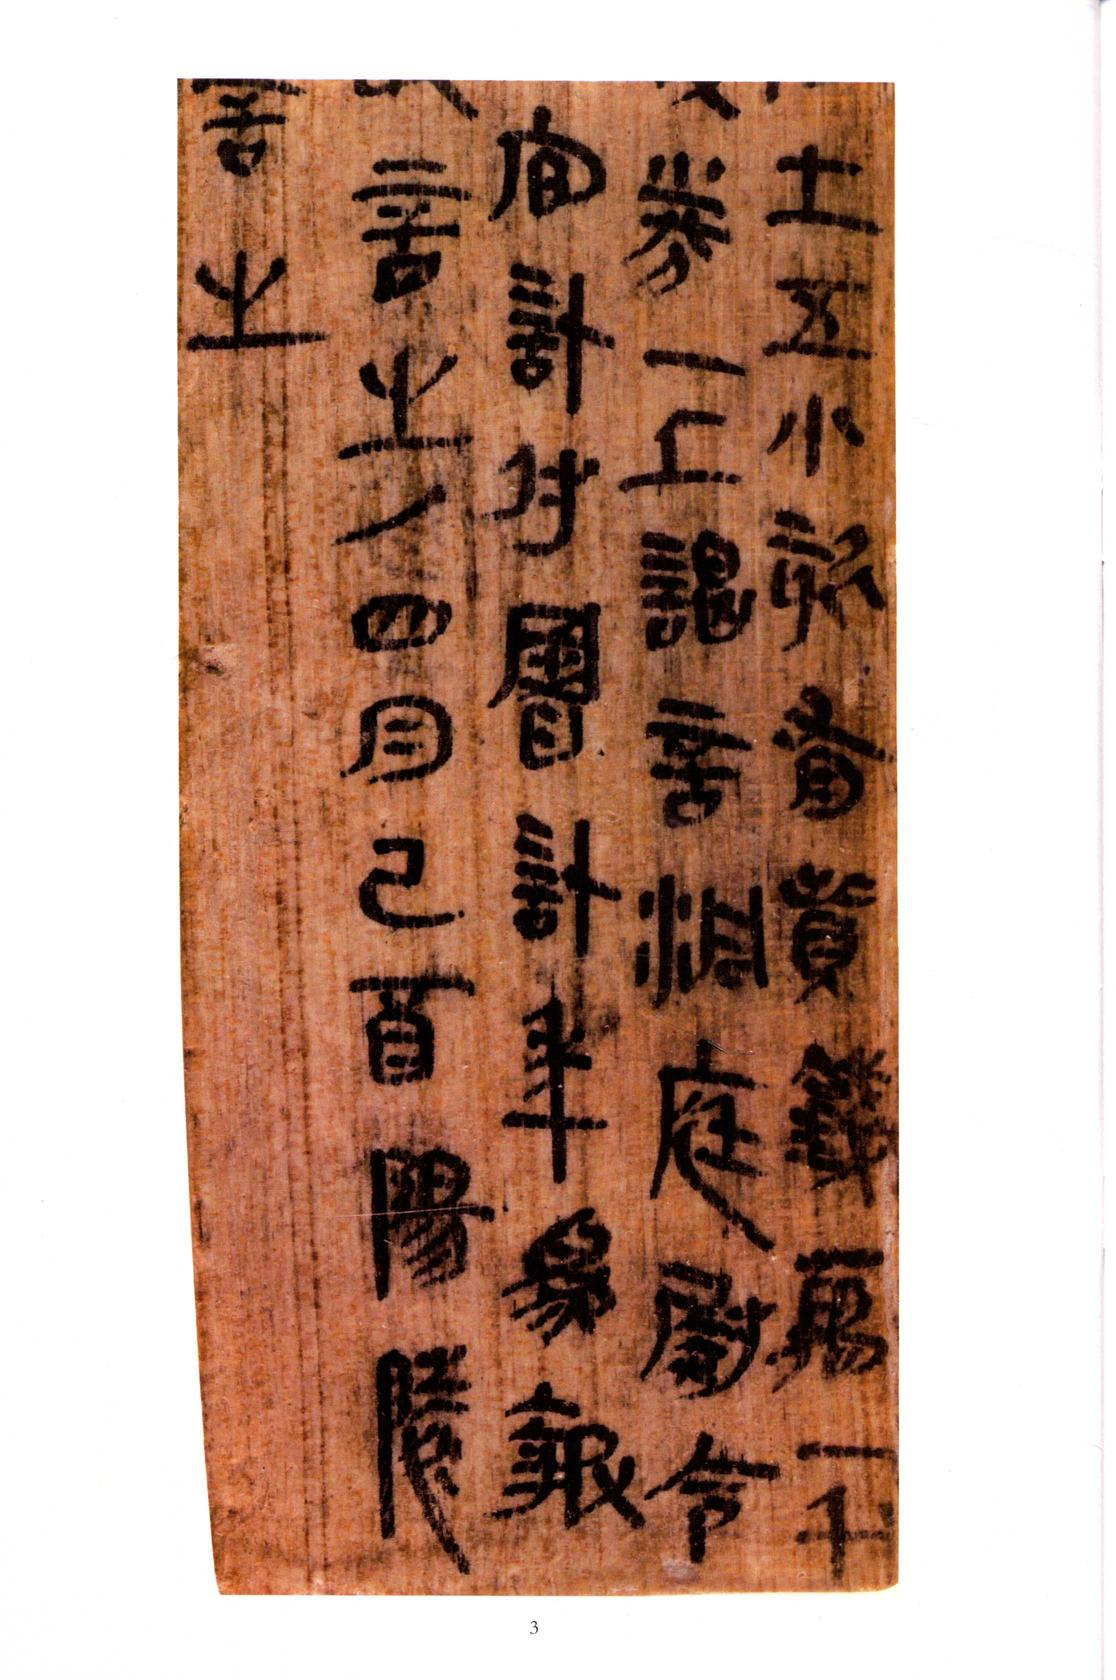 士五小欬有貲錢萬一千
券一上謁言洞庭尉令
官計付署計年為報
言之/四月己酉陽陵
言之